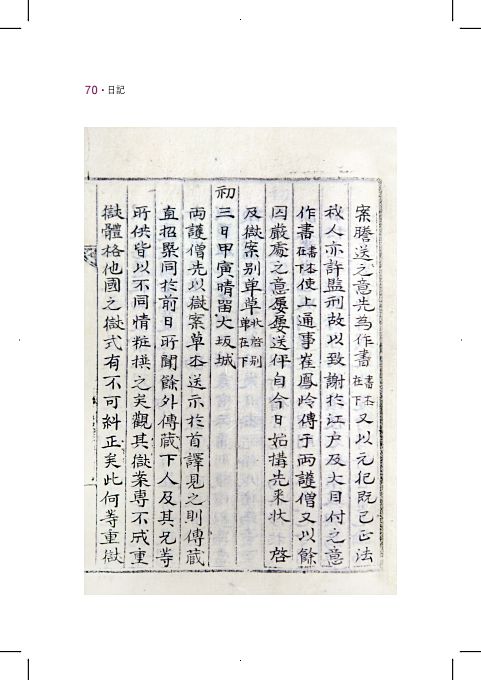 70 · 日記
案謄送之意先爲作書書本在下又以元犯旣已正法
我人亦許監刑故以致謝於江戶及大目付之意
作書書本在下使上通事崔鳳岭傳于兩護僧又以餘
囚嚴處之意屢屢送伻自今日始搆先來狀 啓
及獄案別單草狀啓別單在下
初三日甲寅晴留大坂城
兩護僧先以獄案草本送示於首譯見之則傳藏
直招槩同於前日所聞餘外傳藏下人及其兄等
所供皆以不同情粧撰之矣觀其獄案專不成重
獄體格他國之獄式有不可糾正矣此何等重獄